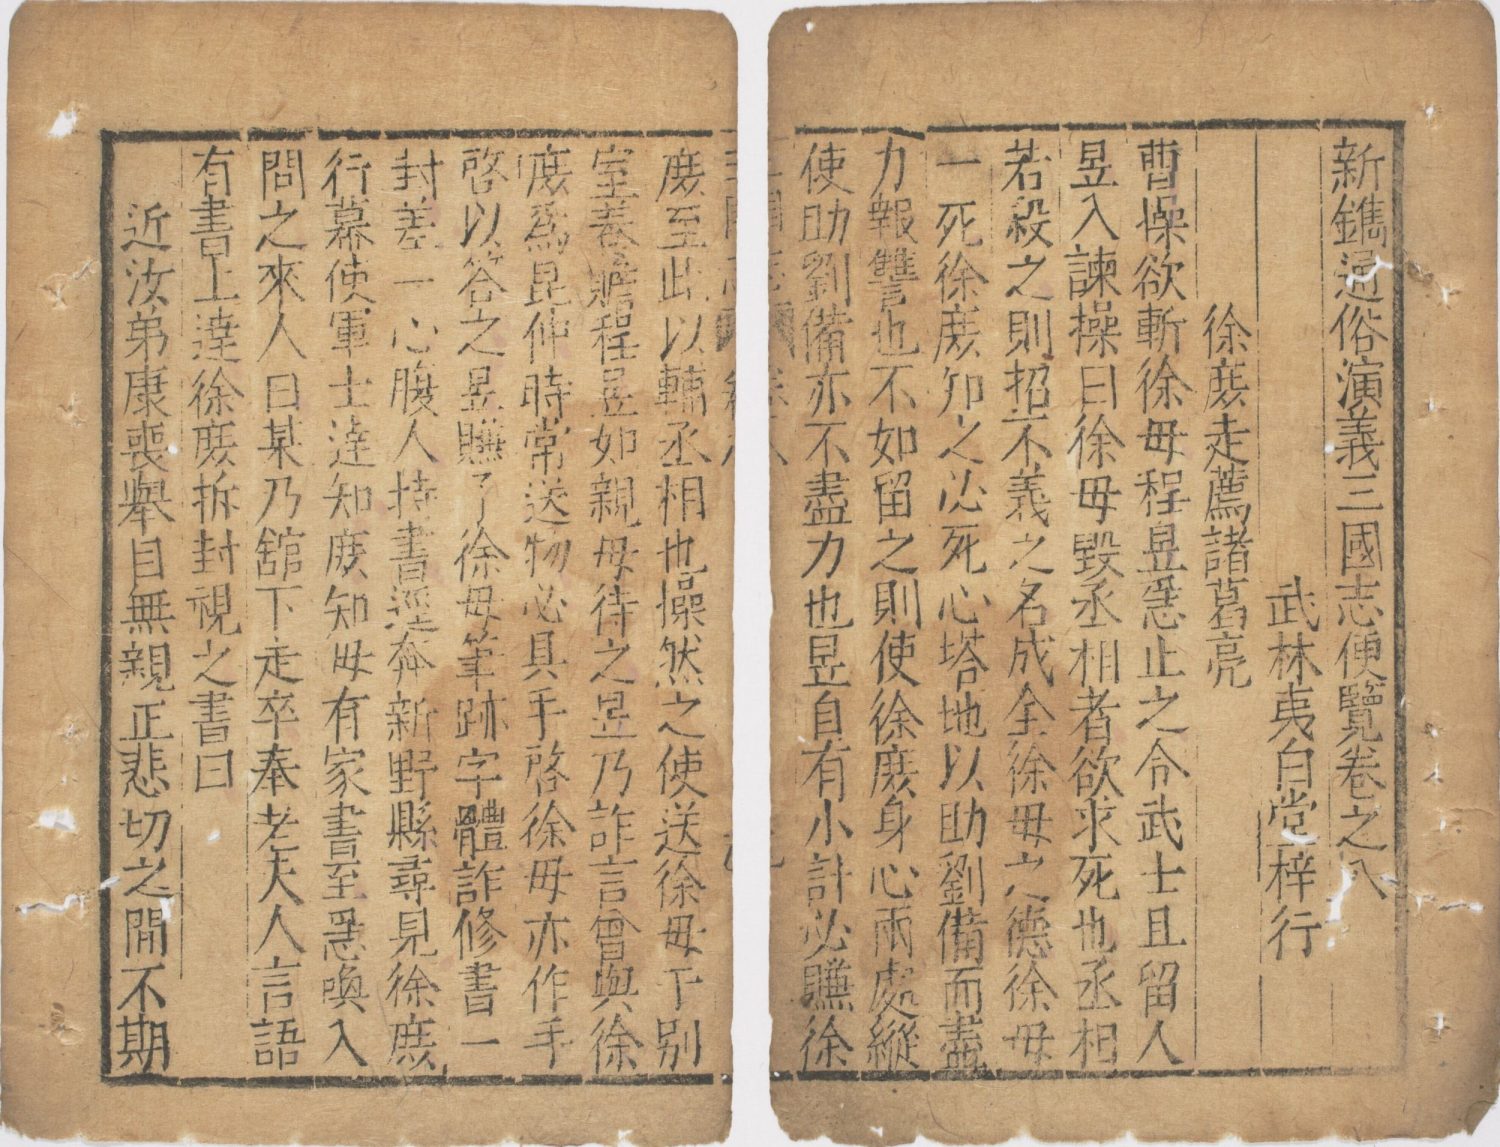 新鐫通俗演義三國志便覽卷之八
武林夷白堂梓行
徐庶走薦諸葛亮
曹操欲斬徐母程昱急止之令武士且留人
昱入諫操曰徐母毀丞相者欲求死也丞相
若殺之則招不義之名成全徐母之德徐母
一死徐庶知之必死心塔地以助劉備而盡
力報讐也不如留之則使徐庶身心兩處縱
使助劉備亦不盡力也昱自有小計必賺徐
庶至此以輔丞相也操然之使送徐母于別
室養贍程昱如親母待之昱乃詐言曾與徐
庶為昆仲時常送物必具手啓徐母亦作手
啓以答之昱賺了徐母筆跡字體詐修書一
封差一心腹人持書逕奔新野縣尋見徐庶
行幕使軍士逹知庶知母有家書至急喚入
問之來人曰某乃舘下走卒奉老夫人言語
有書上逹徐庶拆封視之書曰
近汝弟康喪舉目無親正悲切之間不期